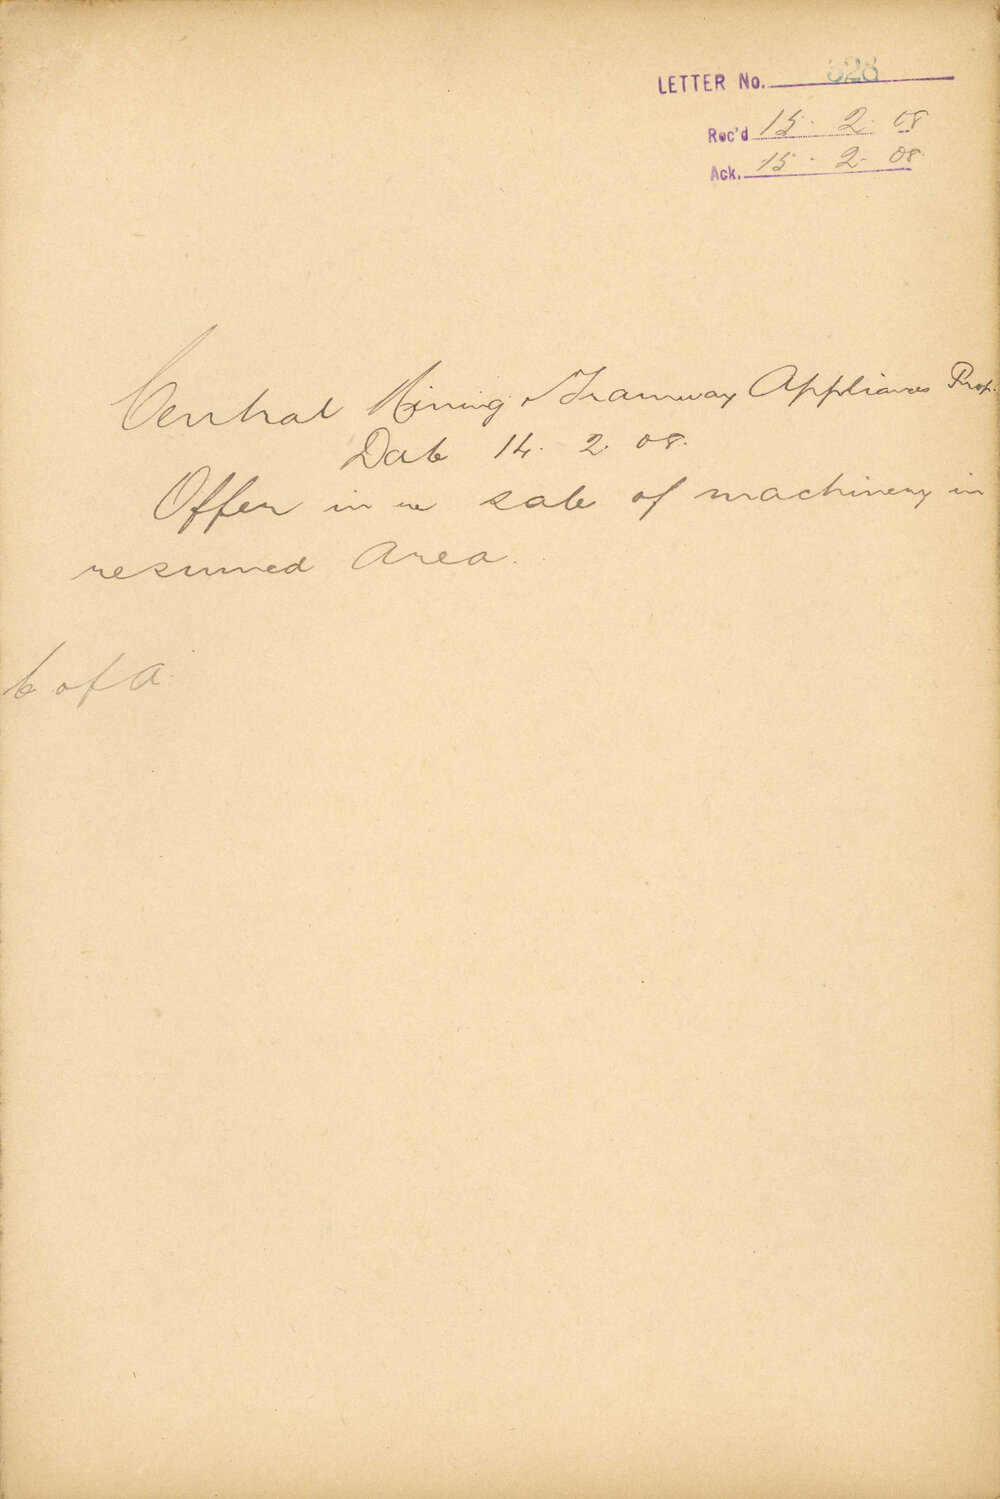 LETTER No. 626
Rec'd 15. 2. 08
Ack. 15. 2. 08.
Central Mining & Tramway Appliances Prop.
Date 14. 2. 08.
Offer in re sale of machinery in
resumed Area.
C of A.